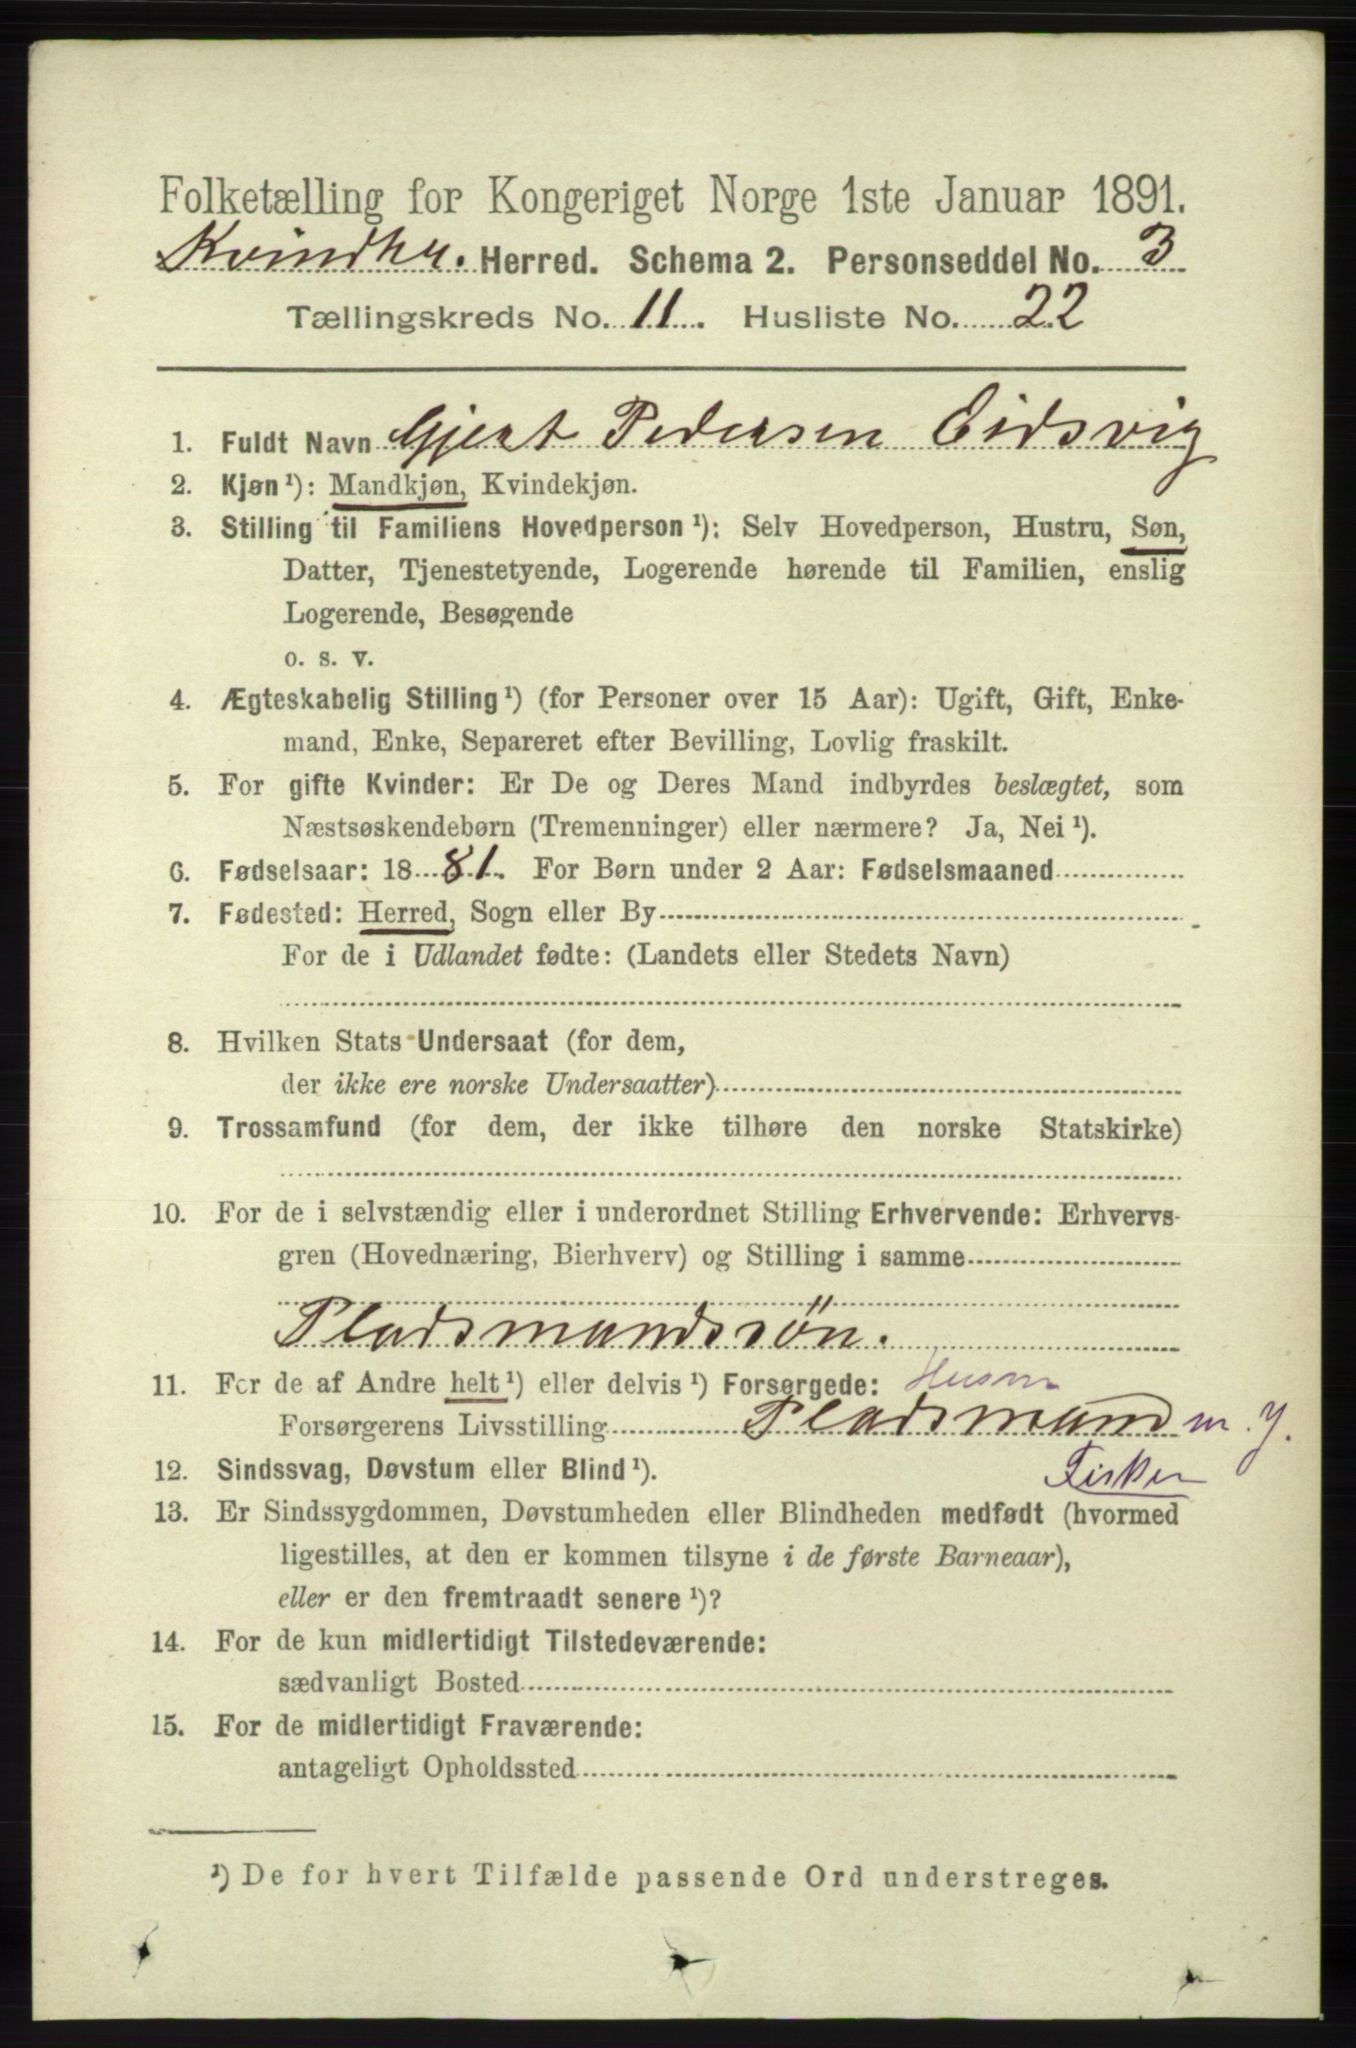 Folketælling for Kongeriget Norge 1ste Januar 1891.
Kvindhr. Herred. Schema 2. Personseddel No. 3
Tællingskreds No. 11. Husliste No. 22
1. Fuldt Navn Gjert Pedersen Eidsvig
2. Kjøn¹): Mandkjøn, Kvindekjøn.
3. Stilling til Familiens Hovedperson¹): Selv Hovedperson, Hustru, Søn,
Datter, Tjenestetyende, Logerende hørende til Familien, enslig
Logerende, Besøgende
o. s. v.
4. Ægteskabelig Stilling¹) (for Personer over 15 Aar): Ugift, Gift, Enke-
mand, Enke, Separeret efter Bevilling, Lovlig fraskilt.
5. For gifte Kvinder: Er De og Deres Mand indbyrdes beslægtet, som
Næstsøskendebørn (Tremenninger) eller nærmere? Ja, Nei¹).
6. Fødselsaar: 1881. For Børn under 2 Aar: Fødselsmaaned
7. Fødested: Herred, Sogn eller By
For de i Udlandet fødte: (Landets eller Stedets Navn)
8. Hvilken Stats Undersaat (for dem,
der ikke ere norske Undersaatter)
9. Trossamfund (for dem, der ikke tilhøre den norske Statskirke)
10. For de i selvstændig eller i underordnet Stilling Erhvervende: Erhvervs-
gren (Hovednæring, Bierhverv) og Stilling i samme
Pladsmandssön.
11. For de af Andre helt¹) eller delvis¹) Forsørgede: Husm
Forsørgerens Livsstilling Pladsmand m. J.
12. Sindssvag, Døvstum eller Blind¹). Fisker
13. Er Sindssygdommen, Døvstumheden eller Blindheden medfødt (hvormed
ligestilles, at den er kommen tilsyne i de første Barneaar),
eller er den fremtraadt senere¹)?
14. For de kun midlertidigt Tilstedeværende:
sædvanligt Bosted
15. For de midlertidigt Fraværende:
antageligt Opholdssted
¹) De for hvert Tilfælde passende Ord understreges.